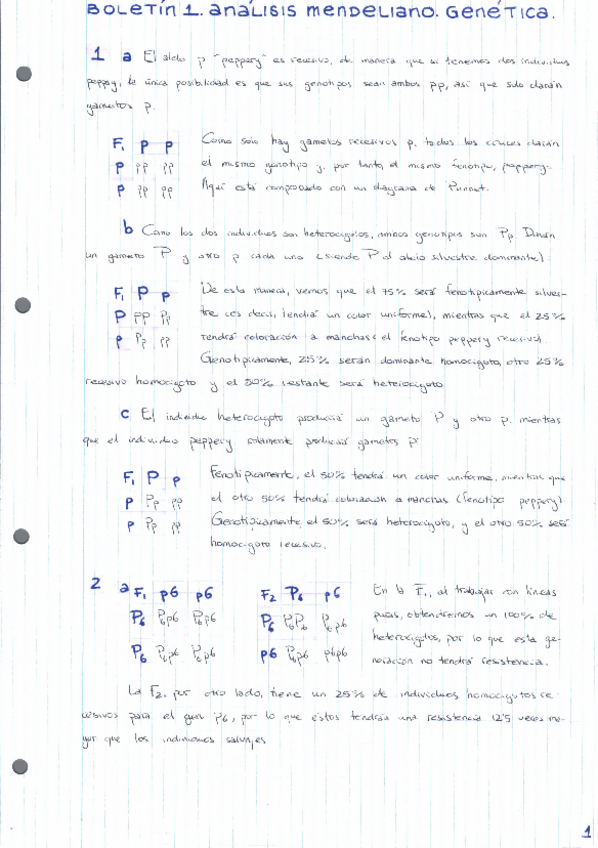 BOLETÍN 1. ANÁLISIS MENDELIANO. GENÉTICA.
1 a El alelo p "peppery" es recesivo, de manera que si tenemos dos individuos
peppery, la única posibilidad es que sus genotipos sean ambos pp, así que solo darán
gametos p.
F1 p p
p pp pp
p pp pp
Como solo hay gametos recesivos p, todos los cruces darán
el mismo genotipo y, por tanto, el mismo fenotipo, peppery.
Aquí está comprobado con un diagrama de Punnet.
b Como los dos individuos son heterocigotos, ambos genotipos son Pp. Darán
un gameto P y otro p cada uno (siendo P el alelo silvestre dominante).
F1 P p
P PP Pp
p Pp pp
De esta manera, vemos que el 75% será fenotípicamente silves-
tre (es decir, tendrá un color uniforme), mientras que el 25%
tendrá coloración a manchas (el fenotipo peppery recesivo).
Genotípicamente, 25% serán dominante homocigoto, otro 25%
recesivo homocigoto y el 50% restante será heterocigoto
c El individuo heterocigoto producirá un gameto P y otro p, mientras
que el individuo peppery solamente producirá gametos p
F1 P p
p Pp pp
p Pp pp
Fenotípicamente, el 50% tendrá un color uniforme, mientras que
el otro 50% tendrá coloración a manchas (fenotipo peppery)
Genotípicamente el 50% será heterocigoto, y el otro 50% será
homocigoto recesivo.
2 a F1 p6 p6
P6 P6p6 P6p6
P6 P6p6 P6p6
F2 P6 p6
P6 P6P6 P6p6
p6 P6p6 p6p6
En la F1, al trabajar con líneas
puras, obtendremos un 100% de
heterocigotos, por lo que esta ge-
neración no tendrá resistencia.
La F2, por otro lado, tiene un 25% de individuos homocigotos re-
cesivos para el gen P6, por lo que éstos tendrán una resistencia 12'5 veces ma-
yor que los individuos salvajes
1